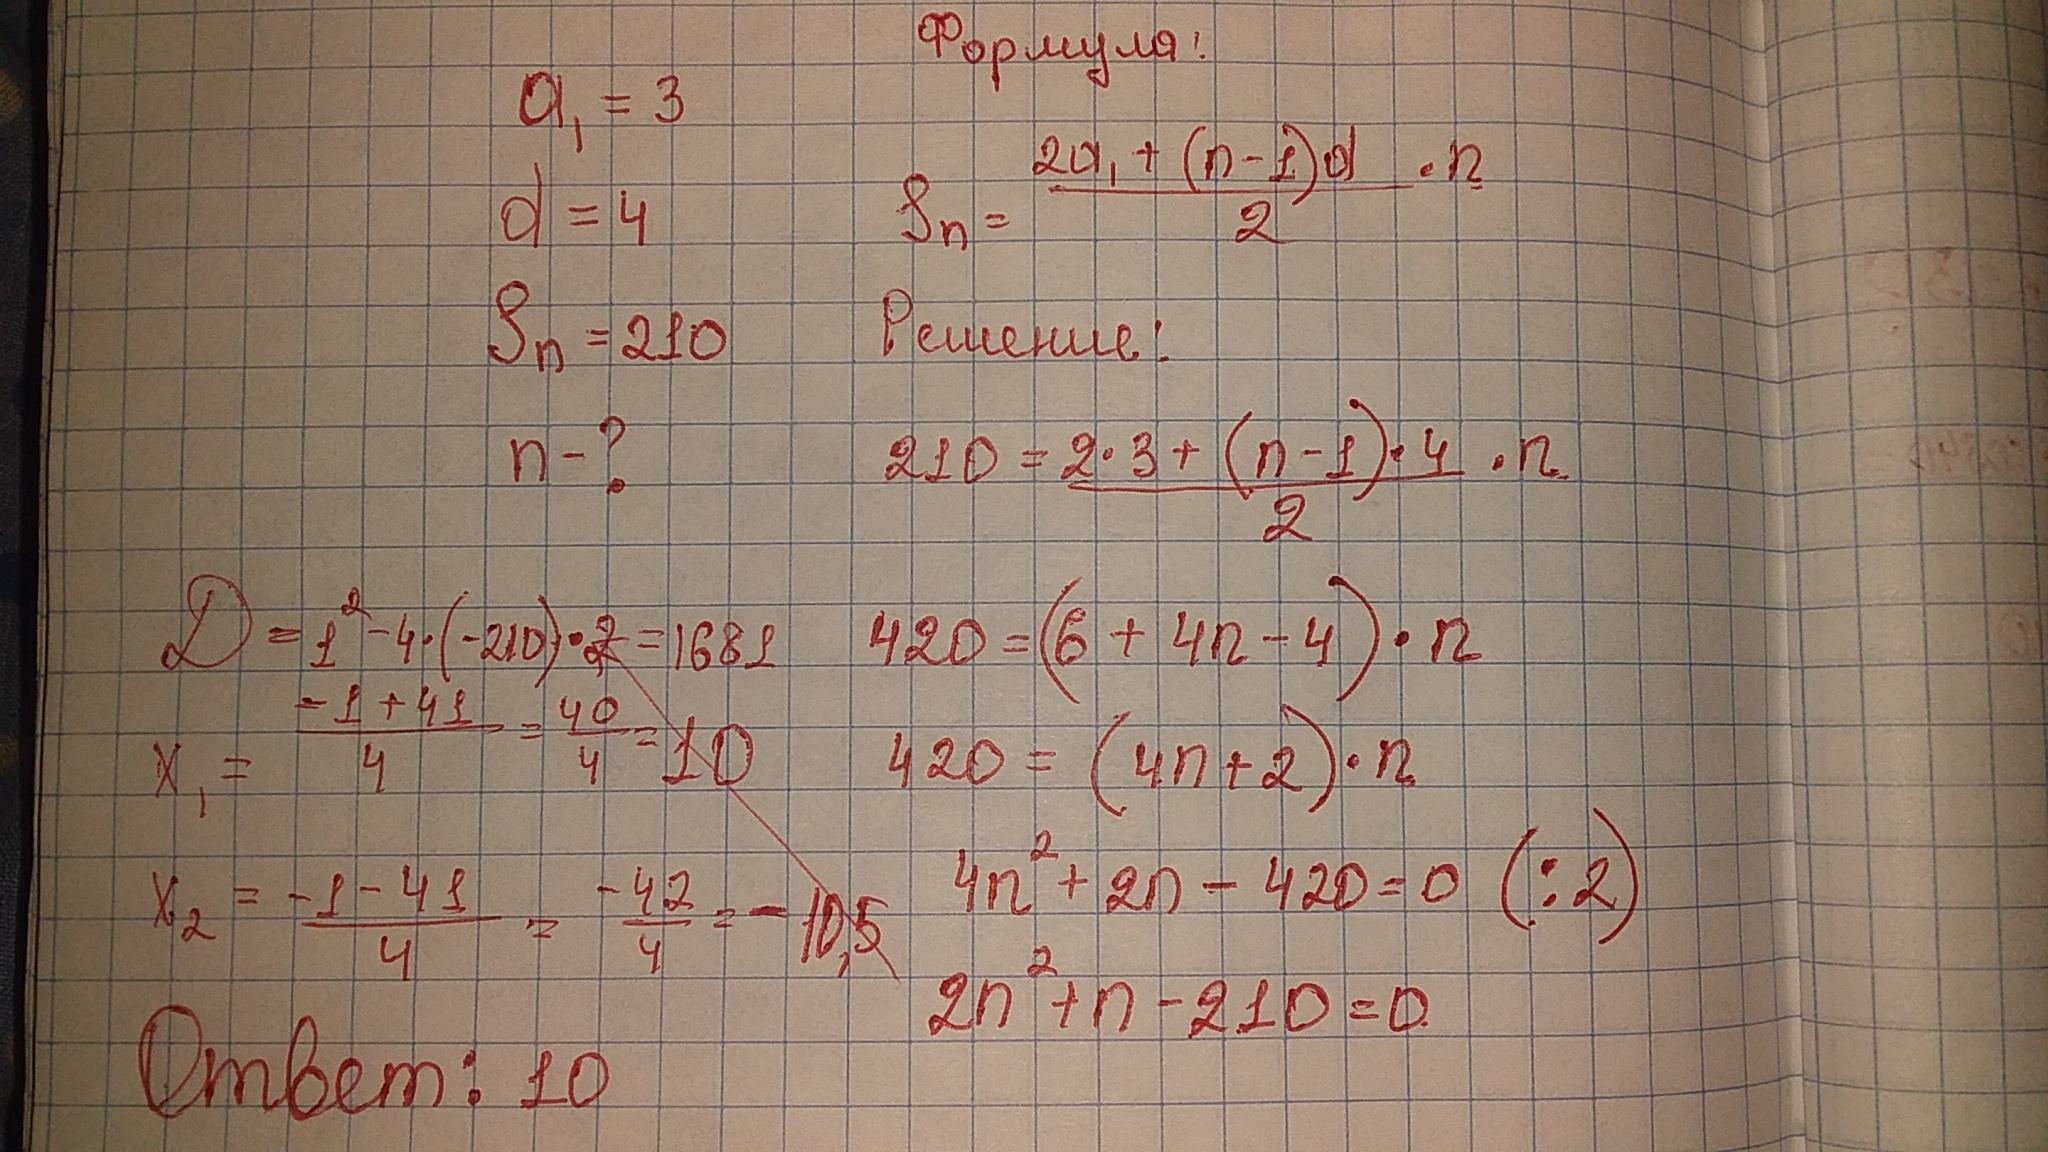 Формула:
a₁ = 3
Sₙ = (2a₁ + (n-1)d)/2 · n
d = 4
Sₙ = 210
Решение:
n - ?
210 = (2·3 + (n-1)·4)/2 · n
420 = (6 + 4n - 4) · n
420 = (4n + 2) · n
4n² + 2n - 420 = 0 (:2)
2n² + n - 210 = 0
D = 1² - 4·(-210)·2 = 1681
x₁ = (-1 + 41)/4 = 40/4 = 10
x₂ = (-1 - 41)/4 = -42/4 = -10,5
Ответ: 10